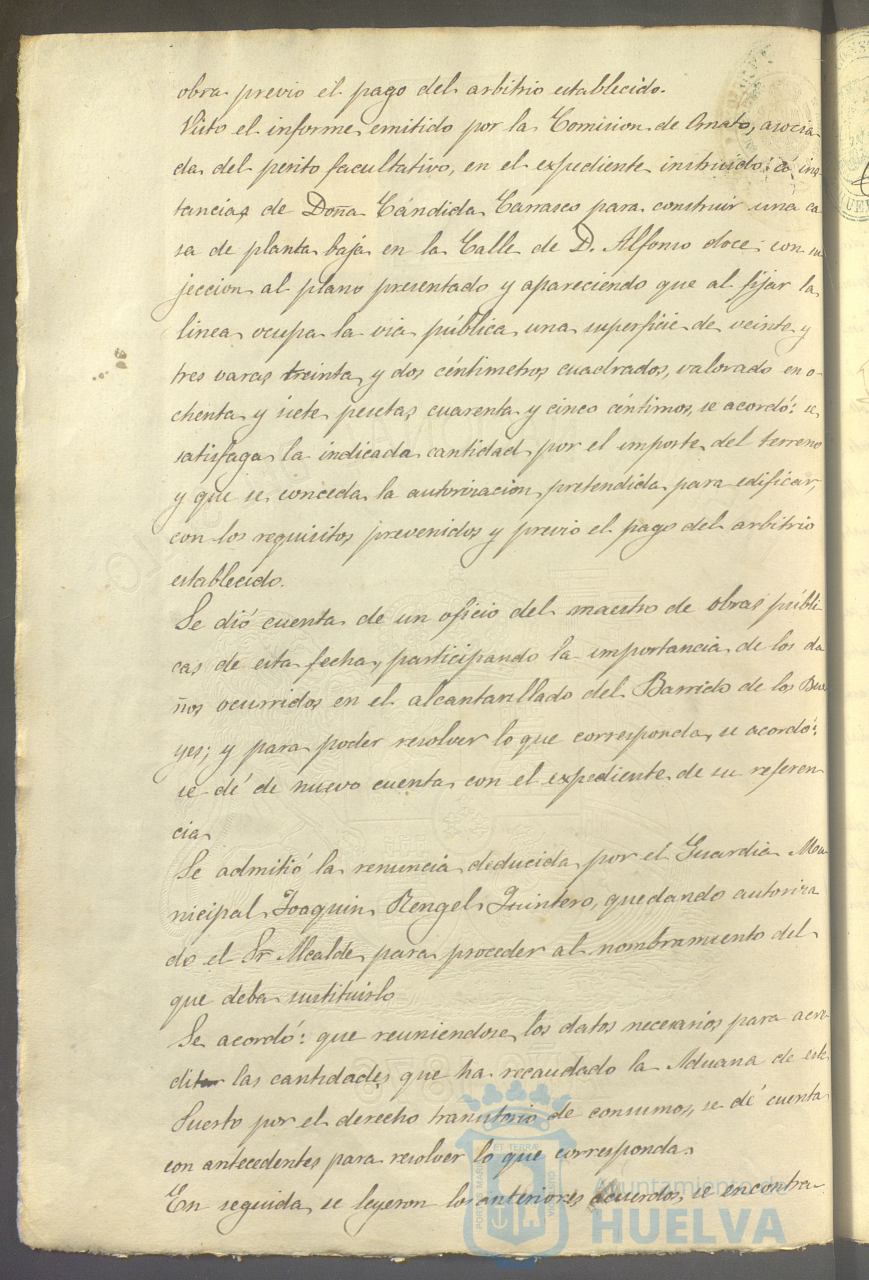 obra previo el pago del arbitrio establecido.
Visto el informe emitido por la Comision de Ornato, asocia
da del perito facultativo, en el expediente instruido á ins
tancias de Doña Cándida Carrasco para construir una ca
sa de planta baja en la Calle de D. Alfonso doce; con su
jeccion al plano presentado y apareciendo que al fijar la
linea ocupa la via pública una superficie de veinte y
tres varas treinta y dos céntimetros cuadrados, valorado en o-
chenta y siete pesetas cuarenta y cinco céntimos, se acordó: se
satisfaga la indicada cantidad por el importe del terreno
y que se conceda la autorizacion pretendida para edificar,
con los requisitos prevenidos y previo el pago del arbitrio
establecido.
Se dió cuenta de un oficio del maestro de obras públi
cas de esta fecha, participando la importancia de los da
ños ocurridos en el alcantarillado del Barrido de los Bue
yes; y para poder resolver lo que corresponda, se acordó:
se dé de nuevo cuenta con el expediente de su referen
cia
Se admitió la renuncia deducida por el Guardia Mu
nicipal Joaquin Rengel Quintero, quedando autoriza
do el Sr Alcalde para proceder al nombramiento del
que deba sustituirlo
Se acordó: que reuniendose los datos necesarios para acre
ditar las cantidades que ha recaudado la Aduana de este
Puerto por el derecho transitorio de consumos, se dé cuenta
con antecedentes para resolver lo que corresponda.
En seguida se leyeron los anteriores acuerdos, se encontra
Ayuntamiento de
HUELVA